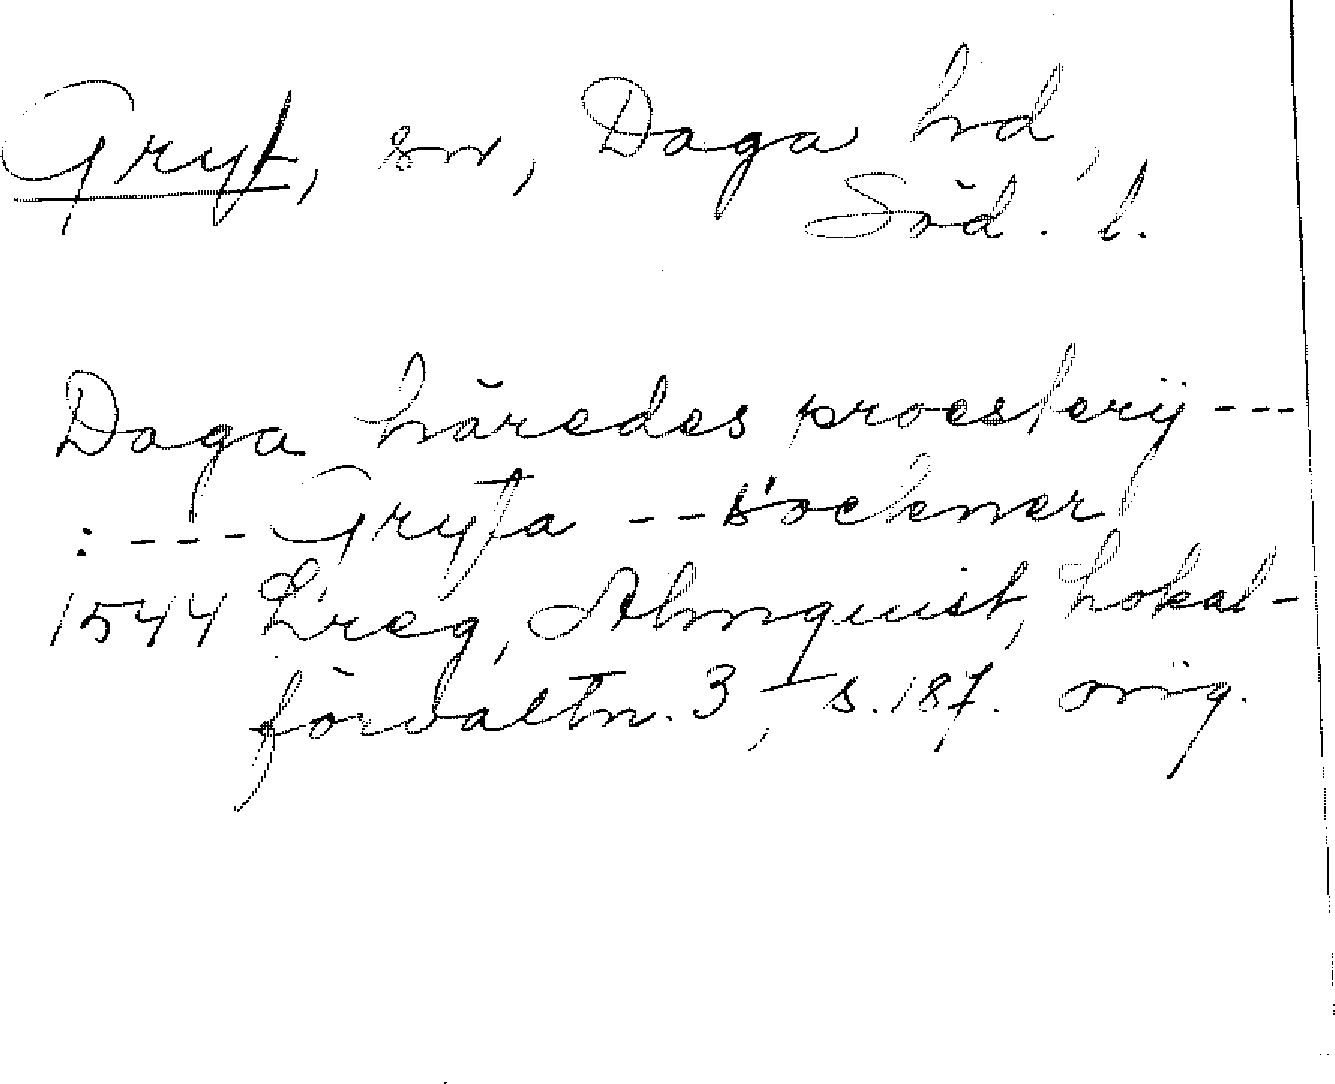 Gryt, sn, Daga hd,
Söd. l.
Daga häredes proesterij ---
: --- Gryta -- sochner
1544 Lreg, Almquist, Lokal-
förvaltn. 3, s. 187. orig.